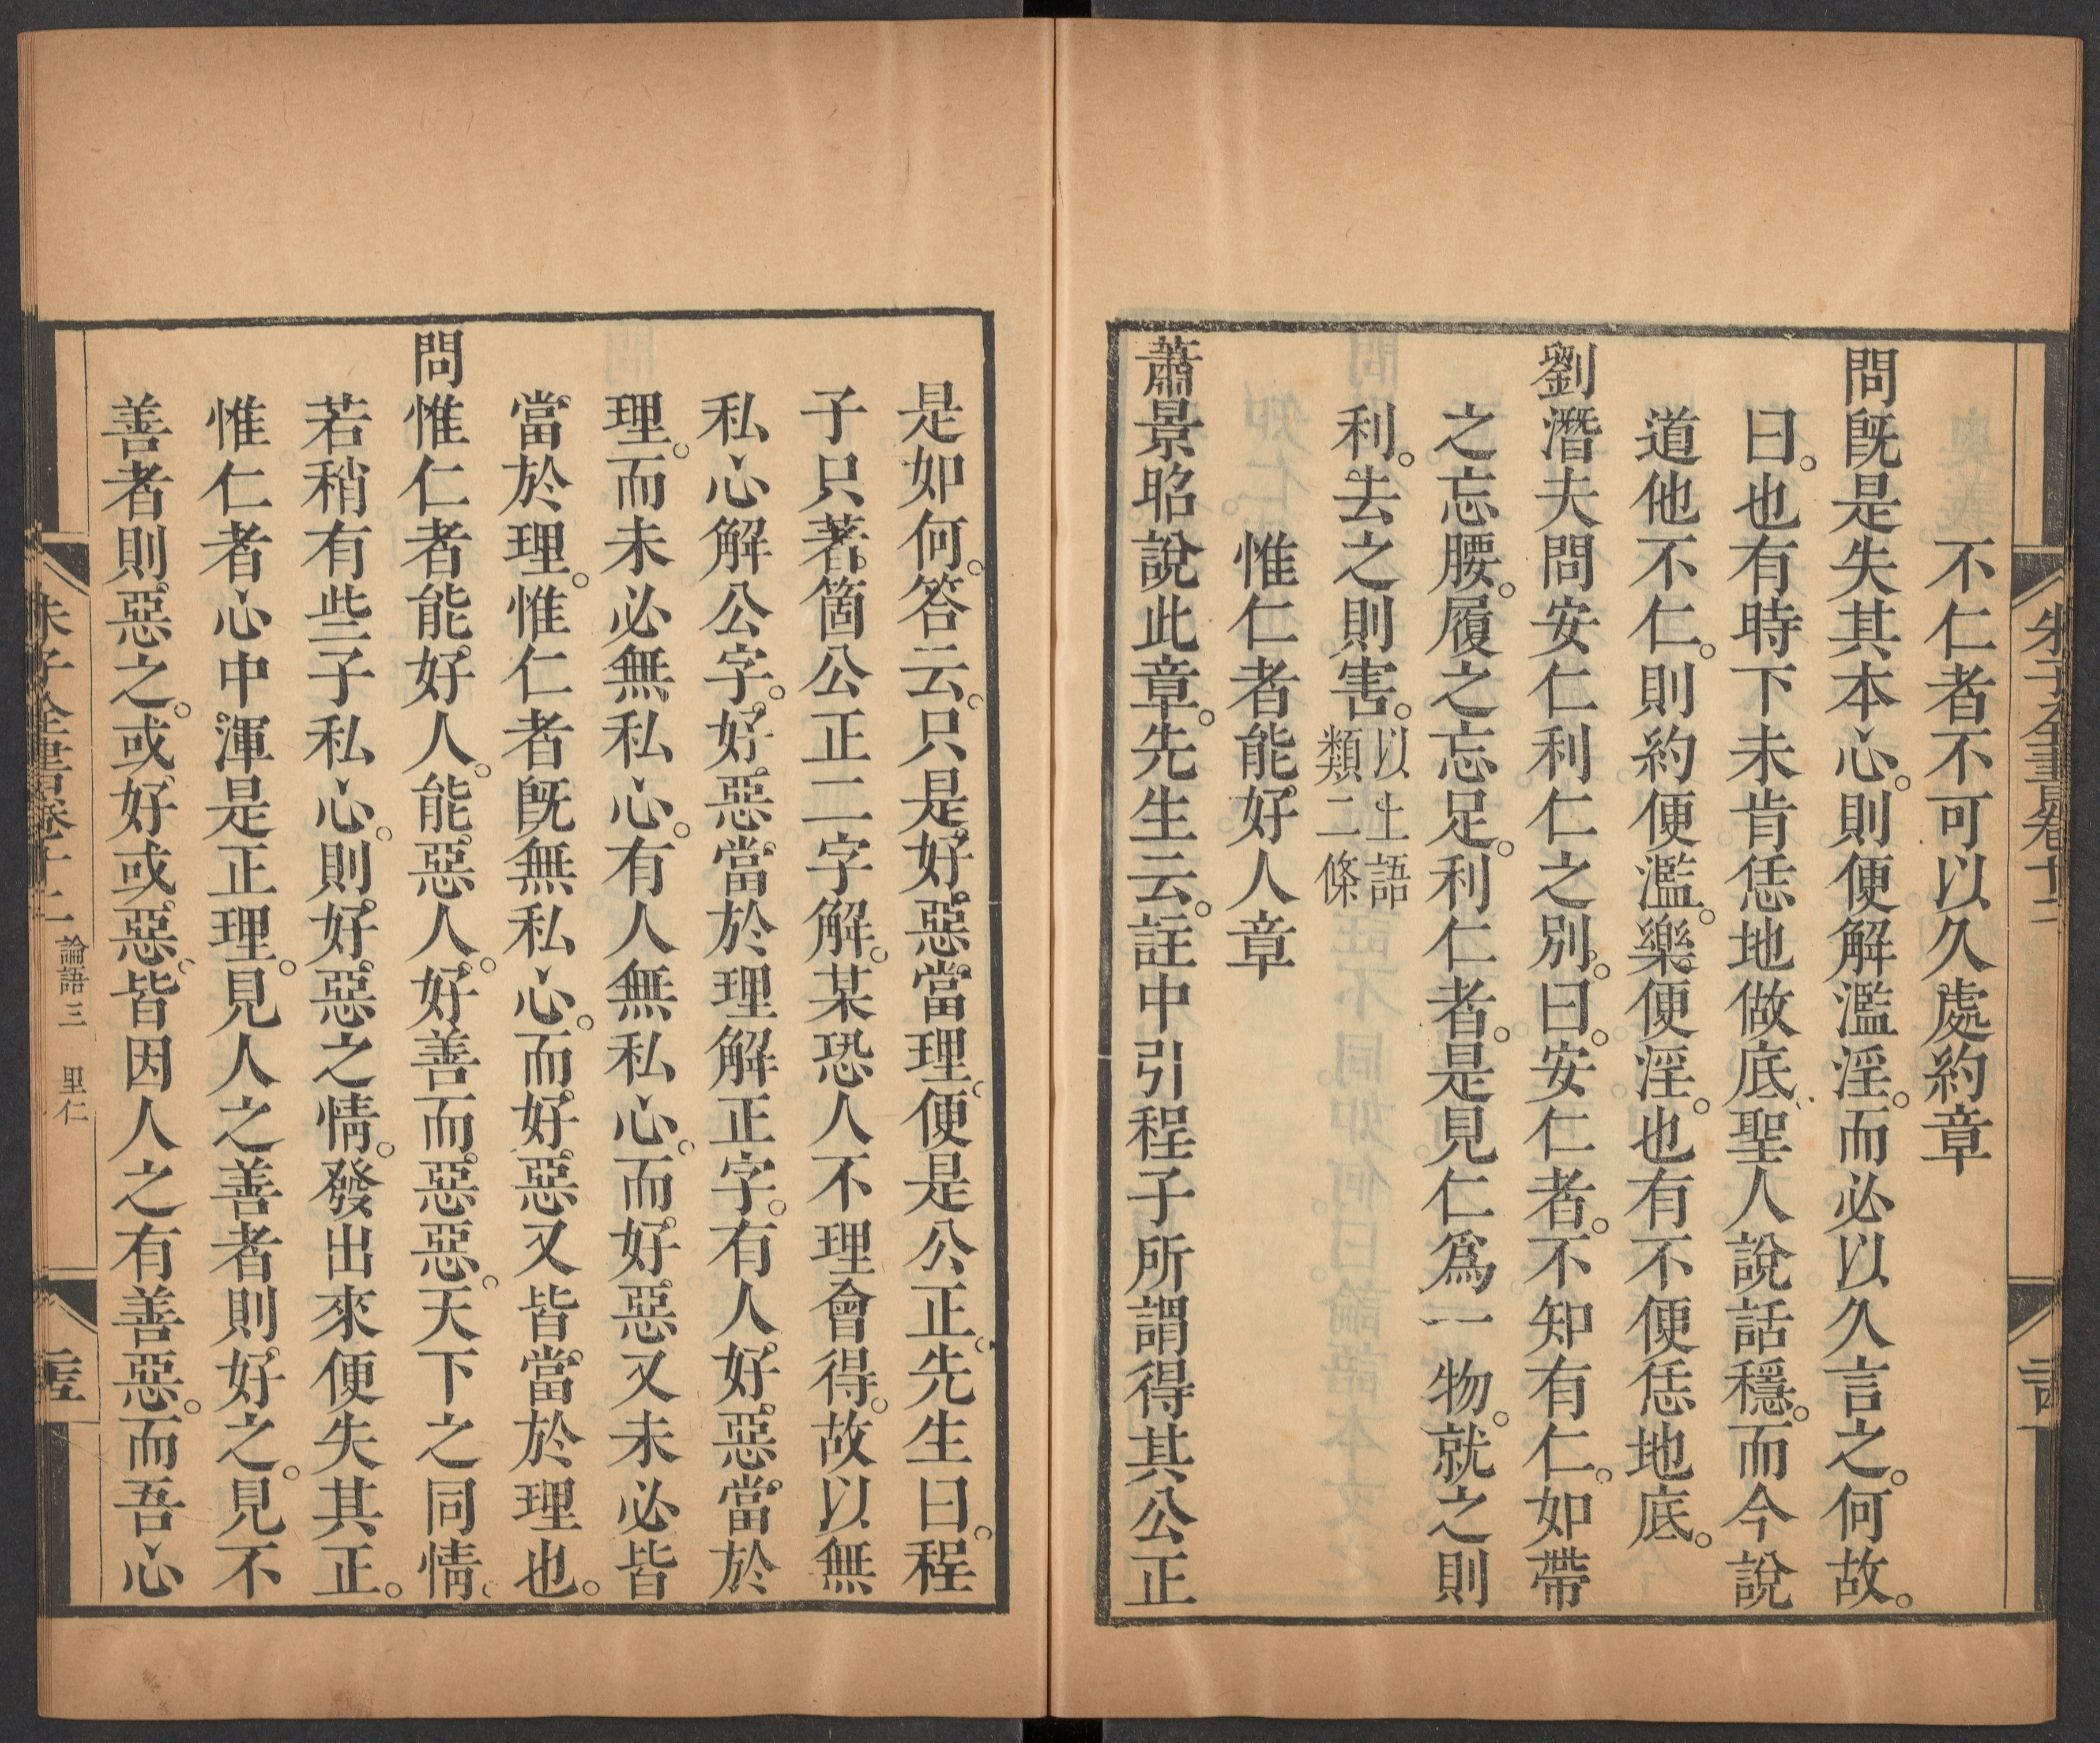 朱子全書卷十二
不仁者不可以久處約章
問旣是失其本心。則便解濫淫。而必以久言之。何故。
曰。也有時下未肯恁地做底、聖人說話穩。而今說
道他不仁。則約便濫。樂便淫。也有不便恁地底。
劉潛夫問安仁利仁之別。曰。安仁者。不知有仁。如帶
之忘腰。履之忘足。利仁者。是見仁爲一物。就之則
利。去之則害。以上語
類二條
惟仁者能好人章
蕭景昭說此章。先生云。註中引程子所謂得其公正
是如何。答云。只是好惡當理、便是公正、先生曰。程
子只著箇公正二字解。某恐人不理會得。故以無
私心解公字。好惡當於理解正字。有人好惡當於
理。而未必無私心。有人無私心。而好惡又未必皆
當於理。惟仁者旣無私心。而好惡又皆當於理也。
問惟仁者能好人。能惡人。好善而惡惡。天下之同情、
若稍有些子私心。則好惡之情。發出來便失其正。
惟仁者心中渾是正理。見人之善者則好之。見不
善者則惡之。或好或惡、皆因人之有善惡。而吾心
朱子全書卷十二 論語三 里仁